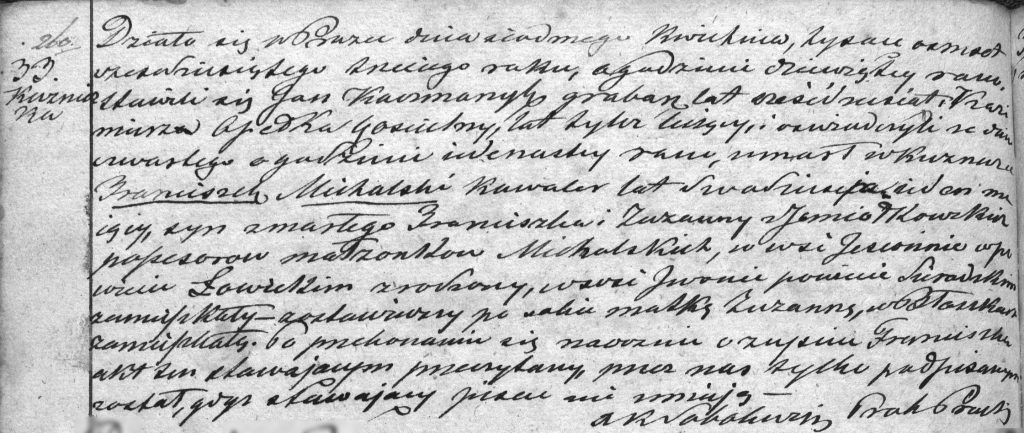 260
33.
Kuznicz
ka
Działo się w dnia siodmego Kwietnia, tysiąc osmset
sześcdziesiątego trzeciego roku, o godzinie dziewiątej rano,
stawili się Jan Kaczmaryk grabarz lat sześćdziesiąt, i Kazi
mierz Kościelny, lat tyleż liczący, i oswiadczyli że dnia
czwartego o godzinie iedenastey rano, umarł w Kuznicze
Franciszek Michalski Kawaler lat dwadziescia siedem ma
iący, syn zmarłego Franciszka i Zuzanny z Jemiołkowskich
possesorow małżonkow Michalskich, w wsi Jesionnie w po
wiecie Łowickim zrodzony, w wsi Iwonie powiecie Sieradzkim
zamieszkały – zostawiwszy po sobie matkę Zuzannę, w Błaszkach
zamieszkałą. Po przekonaniu się naocznie o zejściu Franciszka
akt ten stawającym przeczytany, przez nas tylko podpisanym
został, gdyż stawający pisać nie umieją –